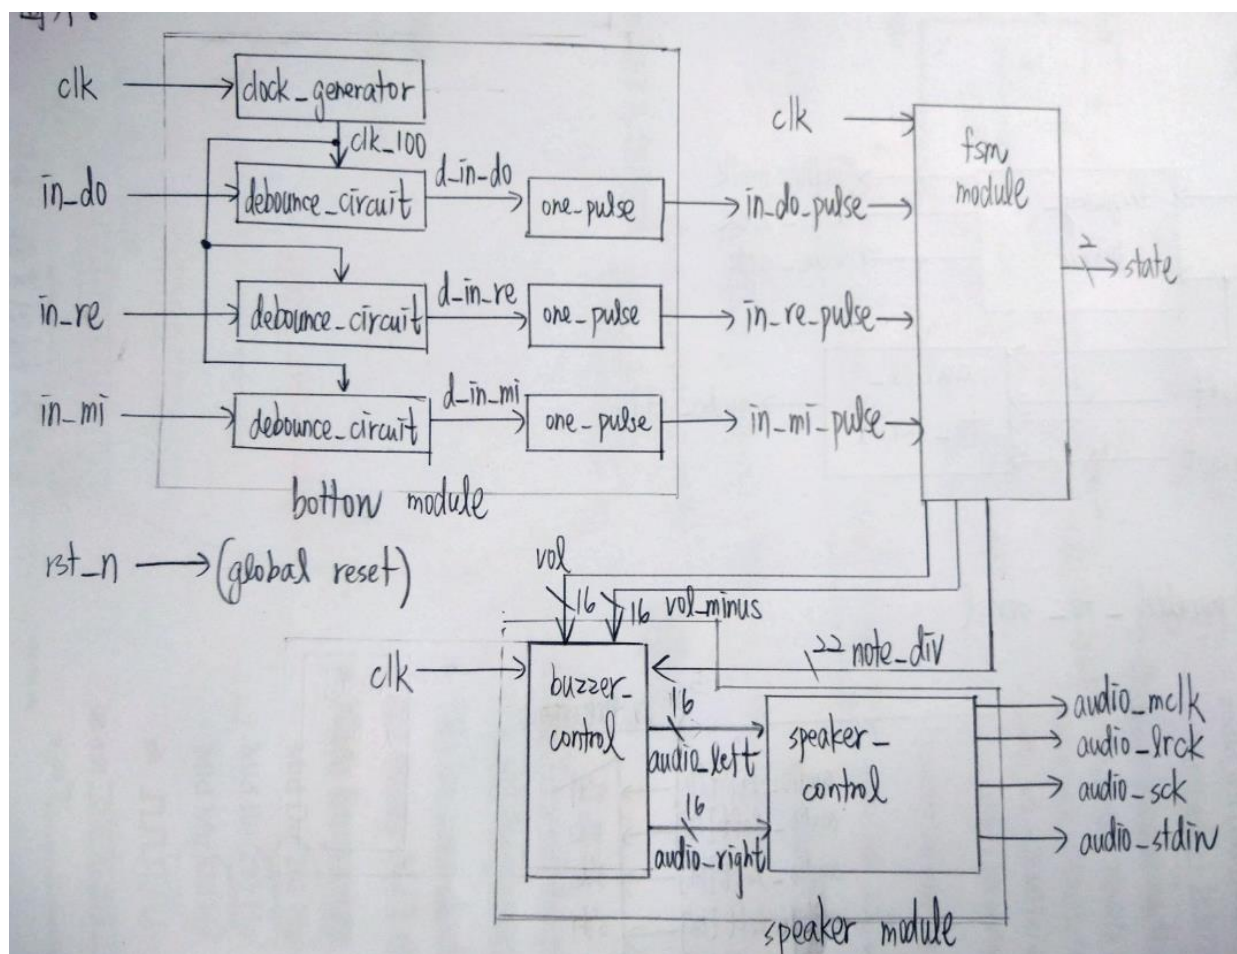 clk
clock_generator
clk_100
in_do
debounce_circuit
d_in_do
one_pulse
in_do_pulse
in_re
debounce_circuit
d_in_re
one_pulse
in_re_pulse
in_mi
debounce_circuit
d_in_mi
one_pulse
in_mi_pulse
botton module
clk
fsm
module
2
state
rst_n
(global reset)
vol
16
16
vol_minus
22
note_div
clk
buzzer_
control
16
audio_left
16
audio_right
speaker_
control
audio_mclk
audio_lrck
audio_sck
audio_stdin
speaker module